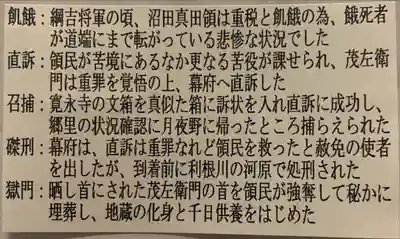 飢餓：綱吉将軍の頃、沼田真田領は重税と飢餓の為、餓死者
が道端にまで転がっている悲惨な状況でした
直訴：領民が苦境にあるなか更なる苦役が課せられ、茂左衛
門は重罪を覚悟の上、幕府へ直訴した
召捕：寛永寺の文箱を真似た箱に訴状を入れ直訴に成功し、
郷里の状況確認に月夜野に帰ったところ捕らえられた
磔刑：幕府は、直訴は重罪なれど領民を救ったと赦免の使者
を出したが、到着前に利根川の河原で処刑された
獄門：晒し首にされた茂左衛門の首を領民が強奪して秘かに
埋葬し、地蔵の化身と千日供養をはじめた